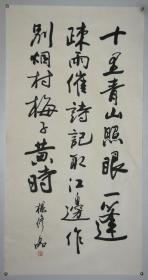 十里青山照眼一蓬
疎雨催詩記取江邊作
别烟村梅子黄時